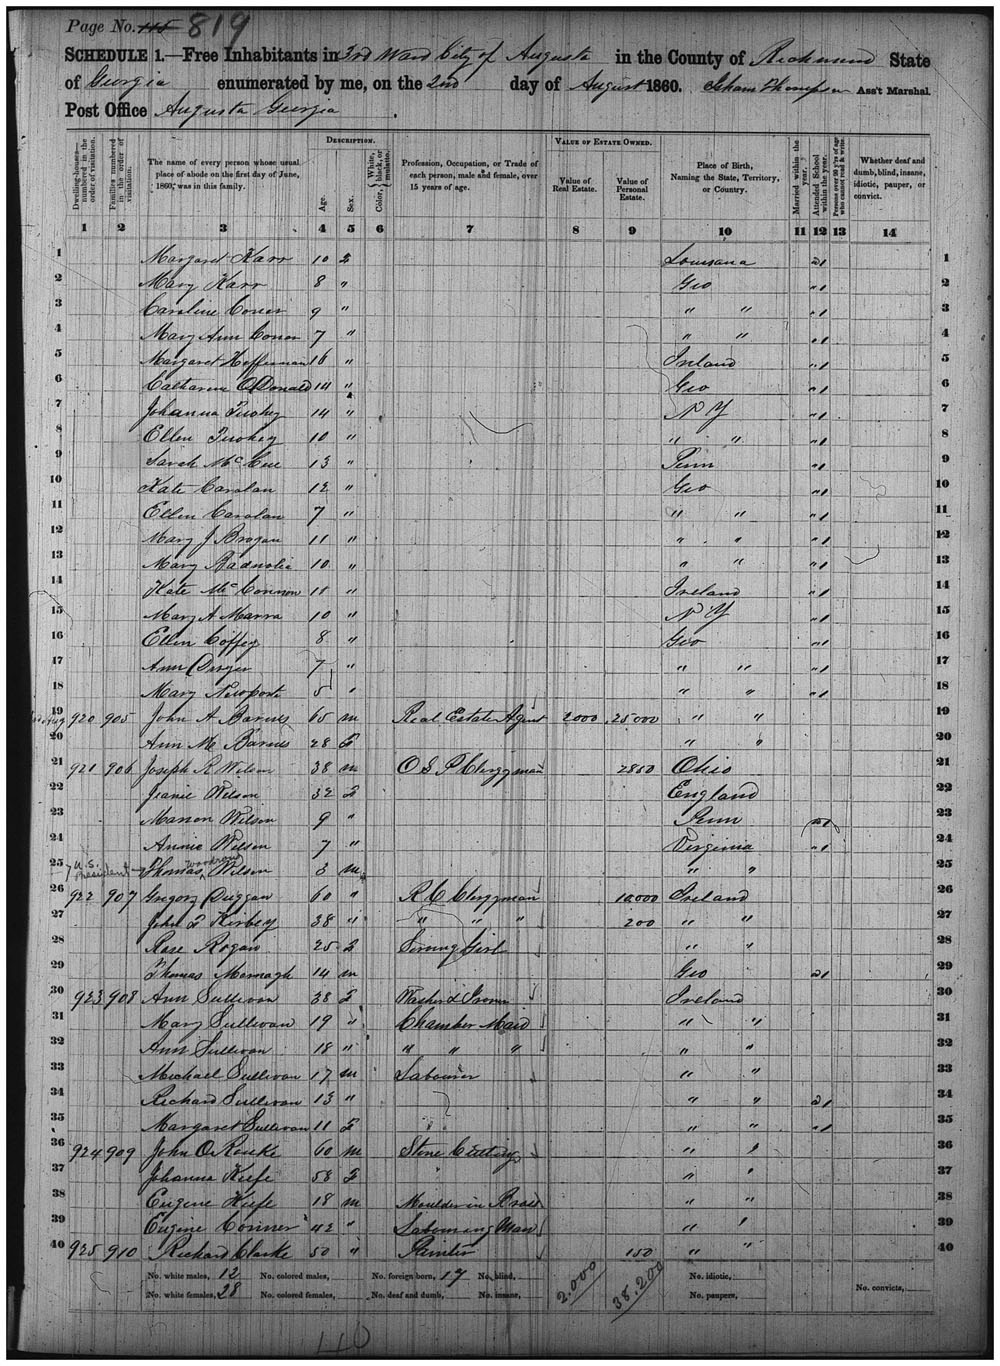 Page No. 115 819
SCHEDULE 1.—Free Inhabitants in 3rd Ward City of Augusta in the County of Richmond State
of Georgia enumerated by me, on the 2nd day of August 1860. Isham Thompson Ass't Marshal.
Post Office Augusta Georgia.
Dwelling-houses—numbered in the order of visitation.
Families numbered in the order of visitation.
The name of every person whose usual place of abode on the first day of June, 1860, was in this family.
DESCRIPTION.
Age.
Sex.
Color, { White, black, or mulatto.
Profession, Occupation, or Trade of each person, male and female, over 15 years of age.
VALUE OF ESTATE OWNED.
Value of Real Estate.
Value of Personal Estate.
Place of Birth, Naming the State, Territory, or Country.
Married within the year.
Attended School within the year.
Persons over 20 y'rs of age who cannot read & write.
Whether deaf and dumb, blind, insane, idiotic, pauper, or convict.
1 2 3 4 5 6 7 8 9 10 11 12 13 14
1 Margaret Karr 10 f Louisiana 1 1
2 Mary Karr 8 " Geo " 1 2
3 Caroline Conor 9 " " " " 1 3
4 Mary Ann Conor 7 " " " " 1 4
5 Margaret Heffernan 16 " Ireland " 1 5
6 Catharine O Donald 14 " Geo " 1 6
7 Johanna Tuohey 14 " N Y " 1 7
8 Ellen Tuohey 10 " " " " 1 8
9 Sarah McCue 13 " Penn " 1 9
10 Kate Carolan 12 " Geo " 1 10
11 Ellen Carolan 7 " " " " 1 11
12 Mary J Brogan 11 " " " " 1 12
13 Mary 10 " " " " 1 13
14 Kate McConnon 11 " Ireland " 1 14
15 Mary A Marra 10 " N Y " 1 15
16 Ellen Coffey 8 " Geo " 1 16
17 Ann 7 " " " " 1 17
18 Mary Newport 5 " " " " 1 18
19 920 905 John A Barnes 65 m Real Estate Agent 2000 25000 " " 19
20 Ann M Barnes 28 f " " 20
21 921 906 Joseph R Wilson 38 m O S P Clergyman 2850 Ohio 21
22 Jeanie Wilson 32 f England 22
23 Marion Wilson 9 " Penn 1 23
24 Annie Wilson 7 " Virginia " 1 24
25 U.S. President Thomas Woodrow Wilson 3 m " " 25
26 922 907 Gregory Duggan 60 " R C Clergyman 10.000 Ireland 26
27 John F Kirbey 38 " " " " 200 " " 27
28 Rose Rogan 25 f Serving Girl " " 28
29 Thomas Mermagh 14 m Geo 1 29
30 923 908 Ann Sullivan 38 f Washer & Ironer Ireland 30
31 Mary Sullivan 19 " Chamber Maid " " 31
32 Ann Sullivan 18 " " " " " " 32
33 Michael Sullivan 17 m Labourer " " 33
34 Richard Sullivan 13 " " " 1 34
35 Margaret Sullivan 11 f " " " 1 35
36 924 909 John O 60 m Stone Cutting " " 36
37 Johanna Kiefe 53 f " " 37
38 Eugene Kiefe 18 m Moulder in " " 38
39 Eugine Conner 42 " Labouring Man " " 39
40 925 910 Richard Clarke 50 " Painter 150 " " 40
No. white males, 12 No. colored males, No. foreign born, 17 No. blind, 2.000 38.200 No. idiotic,
No. white females, 28 No. colored females, No. deaf and dumb, No. insane, No. paupers, No. convicts,
40